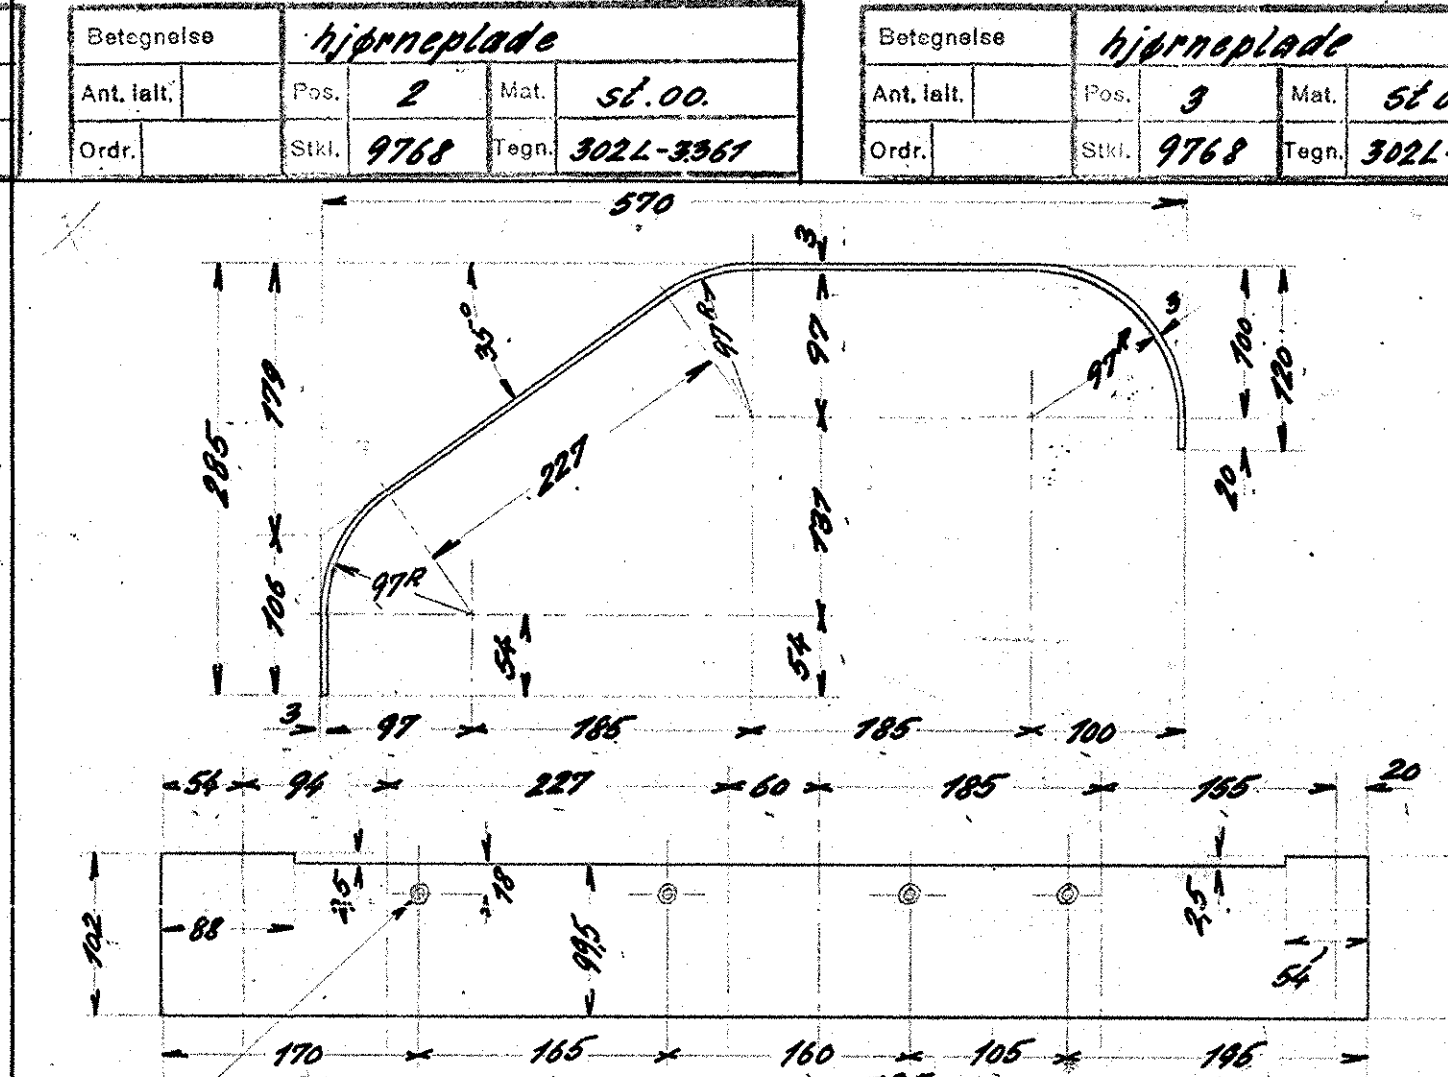 Betegnelse hjørneplade
Ant. ialt. Pos. 2 Mat. st.oo.
Ordr. Stkl. 9768 Tegn. 302L-3361
Betegnelse hjørneplade
Ant. ialt. Pos. 3 Mat. st o
Ordr. Stkl. 9768 Tegn. 302L-
570
3
35°
97R
97
97R
3
100
120
179
285
227
137
20
106
97R
54
54
3 97 185 185 100
54 94 227 60 185 155 20
2,5
18
2,5
102
88
99,5
54
170 165 160 105 195